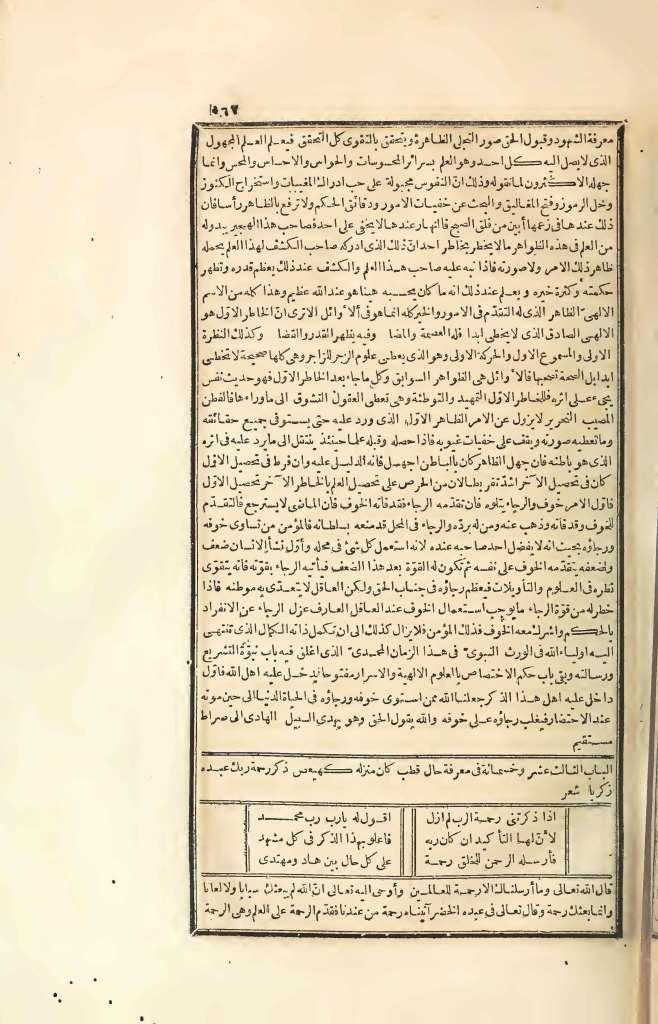 ٥٦٧
معرفة الشهود وقبول الحق صور التجلى الظاهرة ويتحقق بالتقوى كل التحقق فيعلم العلم المجهول
الذى لا يصل اليه كل احد وهو العلم بسرائر المحسوسات والحواس والاحساس والمحس وانما
جهله الاكثرون لما نقوله وذلك انّ النفوس مجبولة على حب ادراك المغيبات واستخراج الكنوز
وحل الرموز وفتح المغاليق والبحث عن خفيات الامور ودقائق الحكم ولا ترفع بالظاهر رأسا فان
ذلك عندها فى زعمها أبين من فلق الصبح فالنهار عندها لا يخفى على احد فصاحب هذا الهجير يبدوله
من العلم فى هذه الظواهر ما لا يخطر بخاطر احد انّ ذلك الذى ادركه صاحب الكشف لهذا العلم يحمله
ظاهر ذلك الامر ولا صورته فاذا نبه عليه صاحب هذا العلم والكشف عند ذلك يعظم قدره وتظهر
حكمته وكثرة خيره ويعلم عند ذلك انه ما كان يحسبه هينا هو عند الله عظيم وهذا كله من الاسم
الالهىّ الظاهر الذى له التقدّم فى الامور والخير كله انما هو فى ألأوائل الاترى انّ الخاطر الاوّل هو
الالهى الصادق الذى لا يخطى ابدا فله العصمة والمضا وفيه يظهر القدر والقضا وكذلك النظرة
الاولى والمسموع الاول والحركة الاولى وهو الذى يعطى علوم الزجر للزاجر وهى كلها صحيحة لا تخطى
ابدا بل الصحة تصحبها فالاوائل هى الظواهر السوابق وكل ما جاء بعد الخاطر الاوّل فهو حديث نفس
يجىء على اثره فللخاطر الاول التمهيد والتوطئة وهى تعطى العقول التشوق الى ما وراءها فالفطن
المصيب النحرير لا يزول عن الامر الظاهر الاوّل الذى ورد عليه حتى يستوفى جميع حقائقه
وما تعطيه صورته ويقف على خفيات غيوبه فاذا حصله وقبله علما حينئذ ينتقل الى ما يرد عليه فى اثره
الذى هو باطنه فان جهل الظاهر كان بالباطن اجهل فانه الدليل عليه وان فرط فى تحصيل الاوّل
كان فى تحصيل الآخر اشد تفريطا لان من الحرص على تحصيل العلم بالخاطر الآخر تحصيل الاول
فاول الامر خوف والرجاء يتلوه فان تقدّمه الرجاء فقد فاته الخوف فان الماضى لا يسترجع فالتقدّم
للخوف وقد فاته وذهب عنه ومن له بردّه والرجاء فى المحل قد منعه بسلطانه فالمؤمن من تساوى خوفه
ورجاؤه بحيث انه لا يفضل احد صاحبه عنده لانه استعمل كل شئ فى محله وأوّل نشأ الانسان ضعف
ولضعفه يتقدّمه الخوف على نفسه ثم تكون له القوّة بعد هذا الضعف فيأتيه الرجاء بقوّته فانه يتقوّى
نظره فى العلوم والتأويلات فيعظم رجاؤه فى جناب الحق ولكن العاقل لا يتعدّى به موطنه فاذا
خطر له من قوّة الرجاء ما يوجب استعمال الخوف عند العاقل العارف عزل الرجاء عن الانفراد
بالحكم واشرك معه الخوف فذلك المؤمن فلا يزال كذلك الى ان تكمل ذاته الكمال الذى تنتهى
اليه اولياء الله فى الورث النبوىّ فى هذا الزمان المحمدىّ الذى اغلق فيه باب نبوّة التشريع
ورسالته وبقى باب حكم الاختصاص بالعلوم الالهية والاسرار مفتوحا يدخل عليه اهل الله فاوّل
داخل عليه اهل هذا الذكر جعلنا الله ممن استوى خوفه ورجاؤه فى الحياة الدنيا الى حين موته
عند الاحتضار فيغلب رجاؤه على خوفه والله يقول الحق وهو يهدى السبيل الهادى الى صراط
مستقيم
الباب الثالث عشر وخسمائة فى معرفة حال قطب كان منزله كهيعص ذكر رحمة ربك عبده
زكريا شعر
اذا ذكرتنى رحمة الرب لم ازل اقول له يارب رب محمد
لأنّ لها التأكيد ان كان ربه فاعلو بهذا الذكر فى كل مشهد
فأرسله الرحمن للخلق رحمة على كل حال بين هاد ومهتدى
قال الله تعالى وما أرسلناك الا رحمة للعالمين وأوحى اليه تعالى انّ الله لم يبعثك سبابا ولا لعانا
وانما بعثك رحمة وقال تعالى فى عبده الخضر آتيناه رحمة من عندنا فقدّم الرحمة على العلم وهى الرحمة